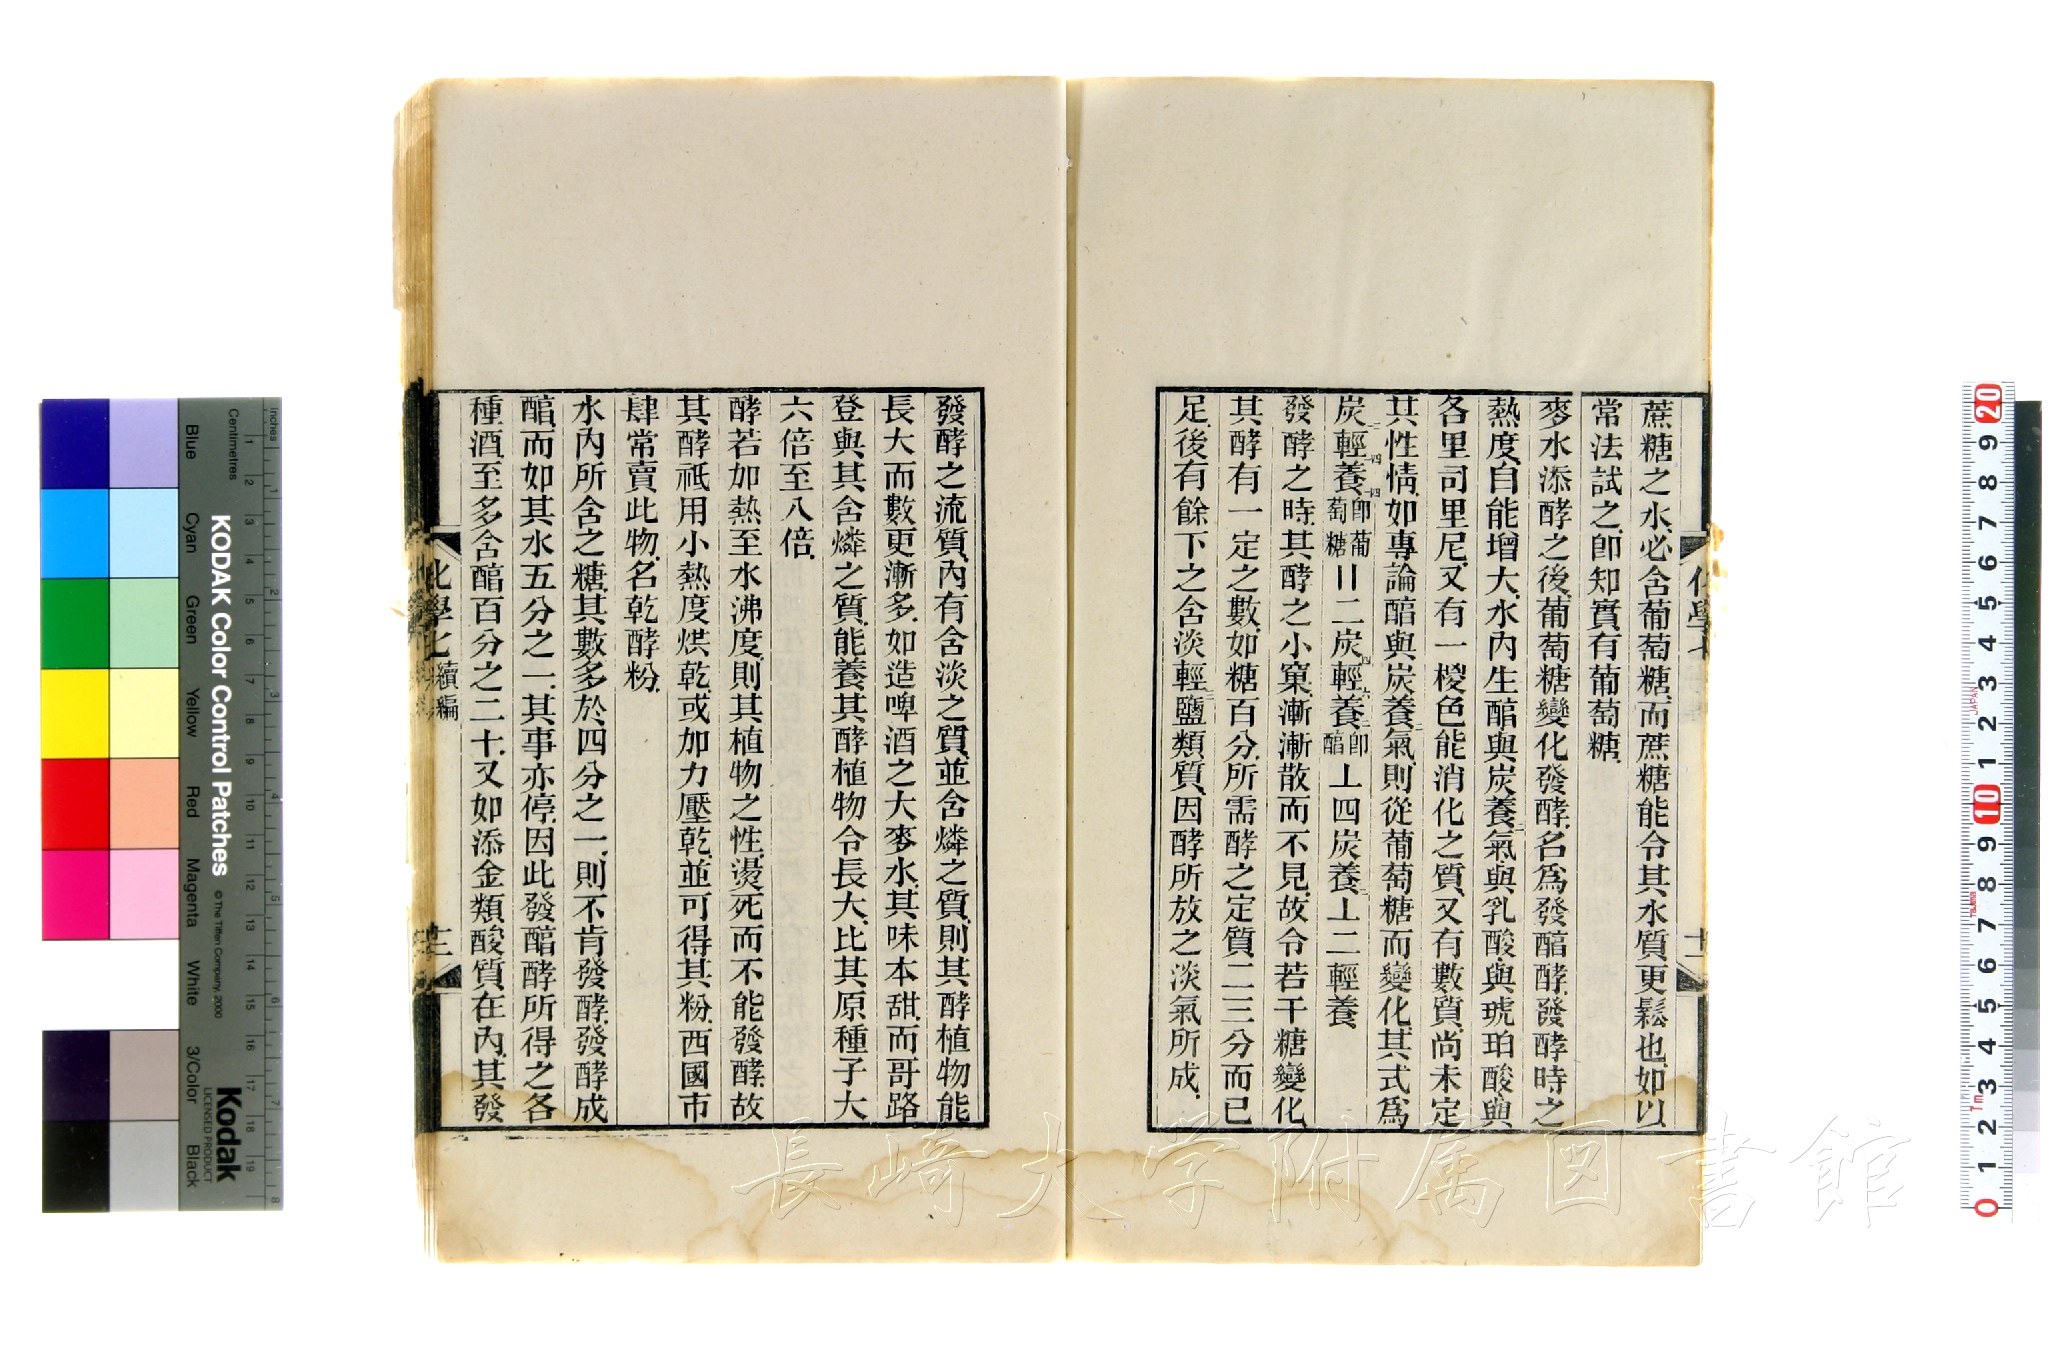 蔗糖之水、必含葡萄糖、而蔗糖能令其水質更鬆也、如以
常法試之、卽知實有葡萄糖、
麥水添酵之後、葡萄糖變化發酵、名爲發醕酵、發酵時之
熱度、自能增大、水內生醕與炭養二氣、與乳酸、與琥珀酸、與
各里司里尼、又有一椶色能消化之質、又有數質、尚未定
其性情、如專論醕與炭養二氣、則從葡萄糖而變化、其式爲
炭十二輕十四養十四卽葡萄糖〢二炭四輕六養二卽醕丄四炭養二丄二輕養
發酵之時、其酵之小窠、漸漸散而不見、故令若干糖變化、
其酵有一定之數、如糖百分、所需酵之定質、二三分而已
足、後有餘下之含淡輕三鹽類質、因酵所放之淡氣所成、
化學七
十二
發酵之流質、內有含淡之質、並含燐之質、則其酵植物能
長大而數更漸多、如造啤酒之大麥水、其味本甜、而哥路
登與其含燐之質、能養其酵植物令長大、比其原種子大
六倍至八倍、
酵若加熱至水沸度、則其植物之性燙死而不能發酵、故
其酵祇用小熱度烘乾、或加力壓乾、並可得其粉、西國市
肆常賣此物、名乾酵粉、
水內所含之糖、其數多於四分之一、則不肯發酵、發酵成
醕、而如其水五分之一、其事亦停、因此發醕酵所得之各
種酒、至多含醕百分之二十、又如添金類酸質在內、其發
化學七 續編
十三
長崎大学附属図書館
Inches
Centimetres
Blue
Cyan
Green
Yellow
Red
Magenta
White
3/Color
Black
KODAK Color Control Patches
© The Tiffen Company, 2000
Kodak
LICENSED PRODUCT